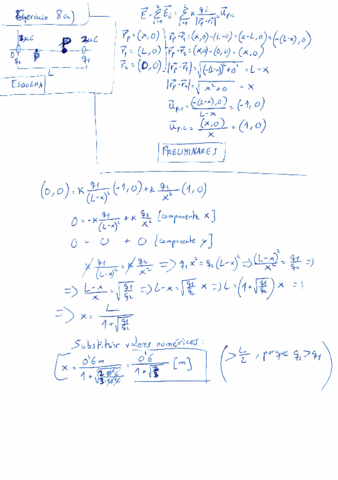 Exercicio 8a)
3μC 2μC
q₂ P q₁
L
ESQUEMA
E⃗ = Σ E⃗ᵢ = Σ K qᵢ/|r⃗p-r⃗ᵢ|² u⃗p,ᵢ
r⃗p = (x,0) r⃗p-r⃗₁ = (x,0)-(L,0) = (x-L,0) = (-(L-x),0)
r⃗₁ = (L,0) r⃗p-r⃗₂ = (x,0)-(0,0) = (x,0)
r⃗₂ = (0,0) |r⃗p-r⃗₁| = √((-(L-x))²+0²) = L-x
|r⃗p-r⃗₂| = √(x²+0) = x
u⃗p,₁ = (-(L-x),0)/(L-x) = (-1,0)
u⃗p,₂ = (x,0)/x = (1,0)
PRELIMINARES
(0,0) = K q₁/(L-x)² (-1,0) + K q₂/x² (1,0)
0 = -K q₁/(L-x)² + K q₂/x² [componente x]
0 = 0 + 0 [componente y]
K q₁/(L-x)² = K q₂/x² => q₁x² = q₂(L-x)² => (L-x)²/x² = q₁/q₂ =>
=> (L-x)/x = √(q₁/q₂) => L-x = √(q₁/q₂) x => L = (1+√(q₁/q₂)) x =>
=> x = L/(1+√(q₁/q₂))
Substituir valores numéricos:
x = 0'6 m/(1+√(2·10⁻⁶/3·10⁻⁶)) = 0'6/(1+√(2/3)) [m] (> L/2, porque q₂>q₁)